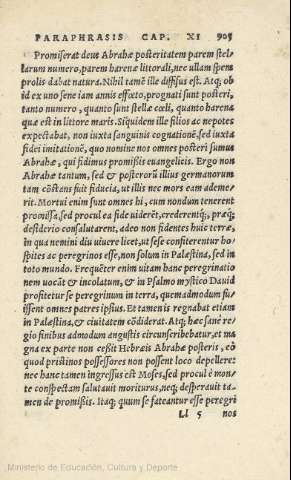 PARAPHRASIS CAP. XI 905
Promiserat deus Abrahæ posteritatem parem stel-
larum numero, parem harenæ littorali, nec ullam spem
prolis dabat natura. Nihil tamē ille diffisus est. Atq; ob
id ex uno sene iam annis effœto, prognati sunt posteri,
tanto numero, quanto sunt stellæ cœli, quanto harena
quæ est in littore maris. Siquidem ille filios ac nepotes
expectabat, non iuxta sanguinis cognationē, sed iuxta
fidei imitationē, quo nomine nos omnes posteri sumus
Abrahæ, qui fidimus promissis euangelicis. Ergo non
Abrahæ tantum, sed & postcrorū illius germanorum
tam cōstans fuit fiducia, ut illis nec mors eam ademe-
rit. Mortui enim sunt omnes hi, cum nondum tenerent
promissa, sed procul ea fide uiderēt, crederentq;, præq;
desiderio consalutarent, adeo non fidentes huic terræ,
in qua nemini diu uiuere licet, ut sese confiterentur ho-
spites ac peregrinos esse, non solum in Palæstina, sed in
toto mundo. Frequēter enim uitam hanc peregrinatio
nem uocāt & incolatum, & in Psalmo mystico Dauid
profitetur se peregrinum in terra, quemadmodum fu-
issent omnes patres ipsius. Et tamen is regnabat etiam
in Palæstina, & ciuitatem cōdiderat. Atq; hæc sanè re-
gio finibus admodum angustis circunscribebatur, et ma
gna ex parte non cessit Hebræis Abrahæ posteris, eò
quod pristinos possessores non possent loco depellere:
nec hanc tamen ingressus est Moses, sed procul è mon-
te conspectam salutauit moriturus, neq; desperauit ta-
men de promissis. Itaq; quum se fateantur esse peregri
Ll 5 nos
Ministerio de Educación, Cultura y Deporte